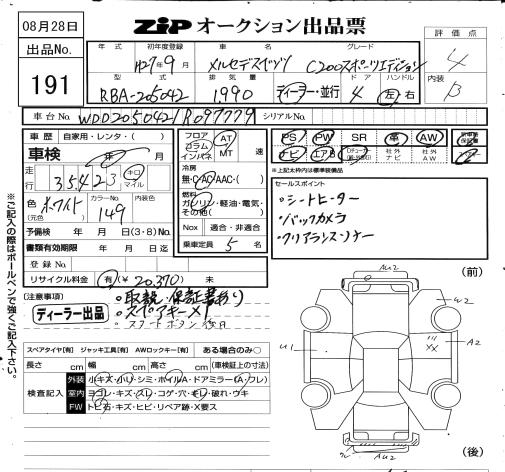 08月28日
ZIPオークション出品票
出品No.
191
年式 初年度登録 車名 グレード
H27年9月 メルセデスベンツ C200スポーツエディション
型式 排気量 ドア ハンドル
RBA-205042 1,990 ディーラー・並行 4 左・右
評価点
4
内装
B
車台No. WDD2050421R097779 シリアルNo.
車歴 自家用・レンタ・( )
車検 年 月
走行 35,423 キロ マイル
色 (元色) ホワイト カラーNo. 149
予備検 年 月 日(3・8)No.
書類有効期限 年 月 日迄
登録No.
リサイクル料金 有(¥20,370) 未
フロア コラム インパネ AT MT 速
冷房
無・AC・AAC・( )
燃料
ガソリン・軽油・電気・その他( )
Nox 適合・非適合
乗車定員 5 名
PS PW SR 革 AW
ナビ エアB 社外ナビ 社外AW
*上記太枠内は標準装備品
セールスポイント
・シートヒーター
・バックカメラ
・クリアランスソナー
(注意事項)
ディーラー出品
・取説・保証書あり
・スペアキー×1
※ご記入の際はボールペンで強くご記入下さい。
スペアタイヤ[有] ジャッキ工具[有] AWロックキー[有] ある場合のみ○
長さ cm 幅 cm 高さ cm (車検証上の寸法)
検査記入
外装 小キズ・小リ・シミ・ホイルA・ドアミラー(A・フレ)
室内 ヨゴレ・キズ・スレ・コゲ・穴・モレ・破れ・ウキ
FW トビ石・キズ・ヒビ・リペア跡・X要ス
(前)
AU2
W2
U1
XX
A2
AU2
(後)